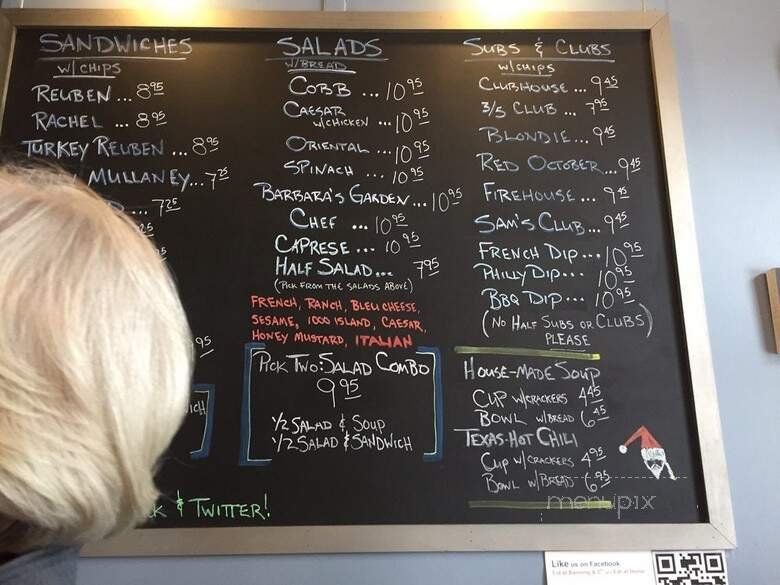 SANDWICHES
W/ CHIPS
REUBEN ... 8 95
RACHEL ... 8 95
TURKEY REUBEN ... 8 95
MULLANEY... 7 25
... 7 25
25
95
WICH
K & TWITTER!
SALADS
W/ BREAD
COBB ... 10 95
CAESAR
W/CHICKEN ... 10 95
ORIENTAL ... 10 95
SPINACH ... 10 95
BARBARA'S GARDEN... 10 95
CHEF ... 10 95
CAPRESE ... 10 95
HALF SALAD... 7 95
(PICK FROM THE SALADS ABOVE)
FRENCH, RANCH, BLEU CHEESE,
SESAME, 1000 ISLAND, CAESAR,
HONEY MUSTARD, ITALIAN
PICK TWO: SALAD COMBO
9 95
1/2 SALAD & SOUP
1/2 SALAD & SANDWICH
SUBS & CLUBS
W/CHIPS
CLUBHOUSE ... 9 45
3/5 CLUB ... 7 95
BLONDIE... 9 45
RED OCTOBER... 9 45
FIREHOUSE ... 9 45
SAM'S CLUB... 9 45
FRENCH DIP... 10 95
PHILLY DIP... 10 95
BBQ DIP... 10 95
(NO HALF SUBS OR CLUBS)
PLEASE
HOUSE-MADE SOUP
CUP W/CRACKERS 4 45
BOWL W/BREAD 6 45
TEXAS-HOT CHILI
CUP W/CRACKERS 4 95
BOWL W/BREAD 6 95
menupix
Like us on Facebook